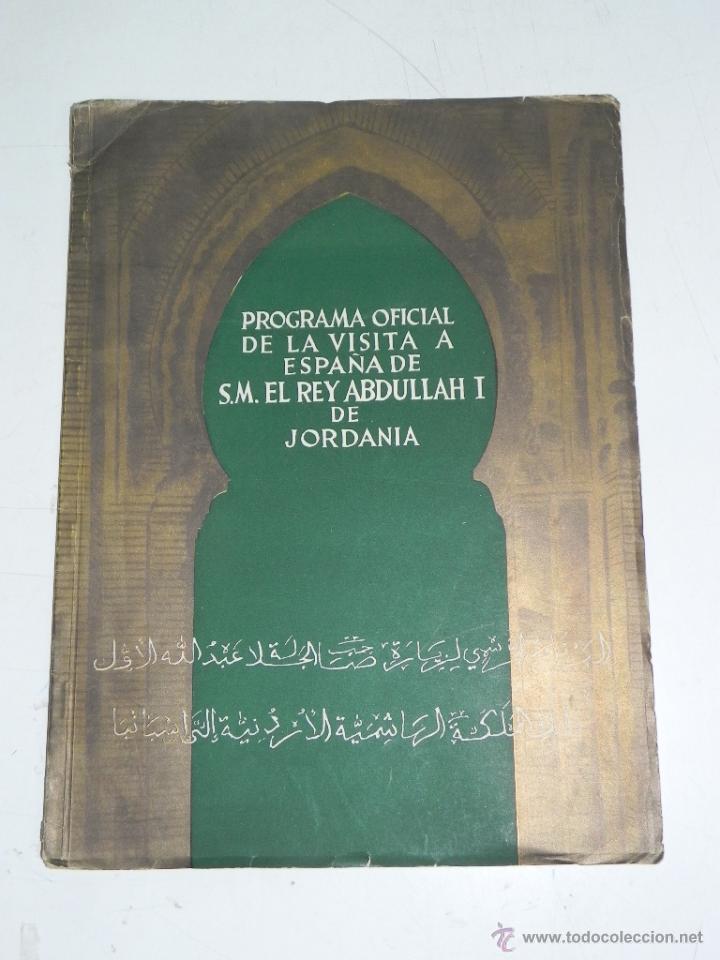 PROGRAMA OFICIAL
DE LA VISITA A
ESPAÑA DE
S.M. EL REY ABDULLAH I
DE
JORDANIA
الرسمي لزيارة صاحب الجلالة عبد الله الأول
المملكة الهاشمية الأردنية إلى اسبانيا
© www.todocoleccion.net